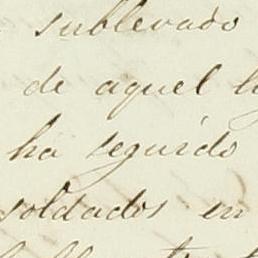 sublevado
de aquel
ha seguido
soldados en